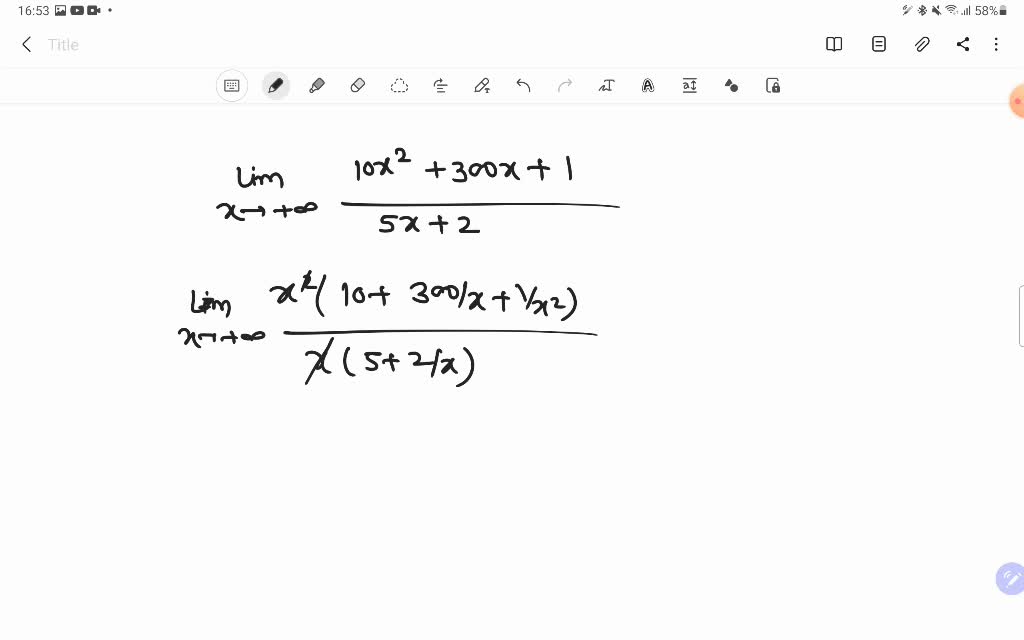 16:53 58%
Title
lim 10x² + 300x + 1
x → +∞ 5x + 2
lim x²( 10 + 300/x + 1/x²)
x → +∞ x ( 5 + 2/x)